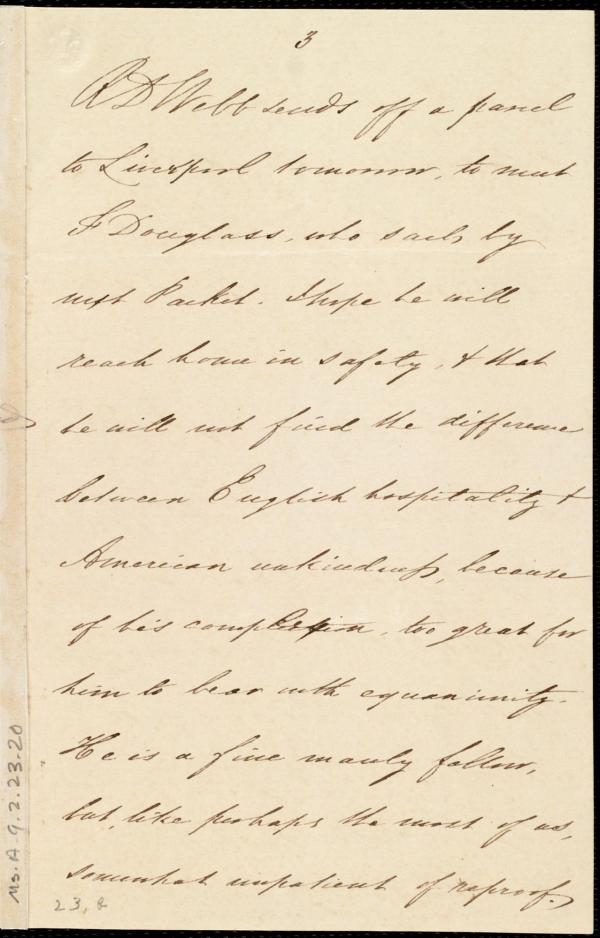 3
R D Webb sends off a parcel
to Liverpool tomorrow, to meet
F Douglass, who sails by
next Packet. I hope he will
reach home in safety, & that
he will not find the difference
between English hospitality &
American unkindness, because
of his complexion, too great for
him to bear with equanimity.
He is a fine manly fellow,
but, like perhaps the most of us,
somewhat impatient of reproof.
Ms. A. 9. 2. 23. 20